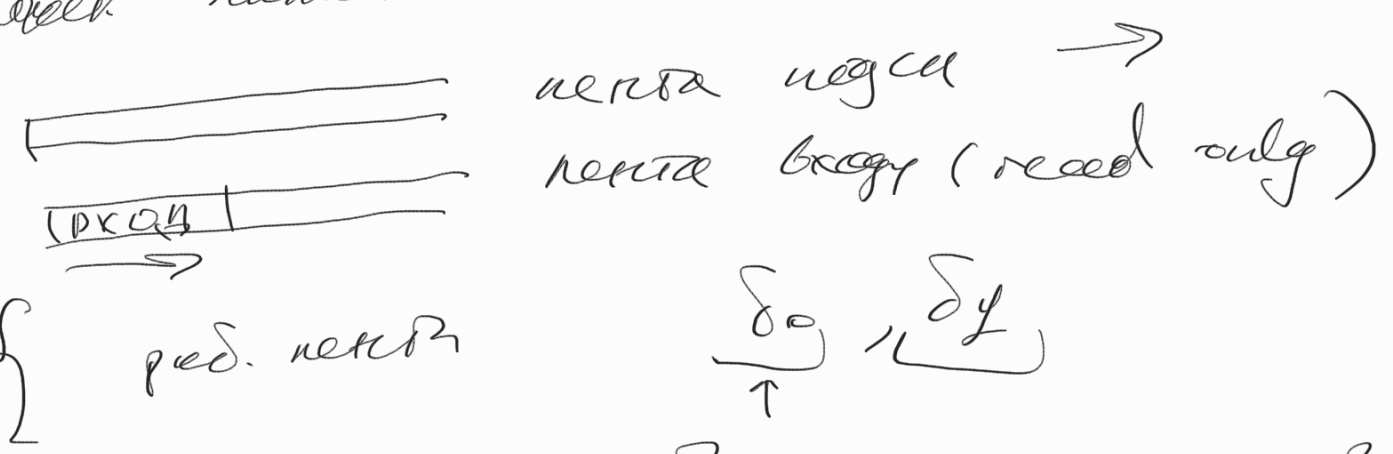 лента →
лента входу (read only)
вход
→
раб. ленты δ₀, δ₁
↑